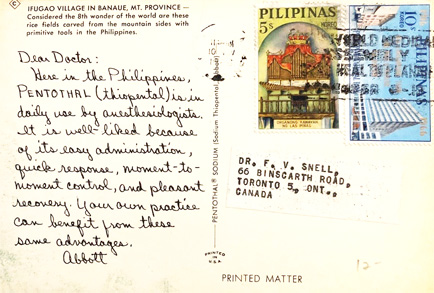 IFUGAO VILLAGE IN BANAUE, MT. PROVINCE —
Considered the 8th wonder of the world are these
rice fields carved from the mountain sides with
primitive tools in the Philippines.
Dear Doctor:
Here in the Philippines,
PENTOTHAL (thiopental) is in
daily use by anesthesiologists.
It is well-liked because
of its easy administration,
quick response, moment-to-
moment control, and pleasant
recovery. Your own practice
can benefit from these
same advantages.
Abbott
PENTOTHAL® SODIUM (Sodium Thiopental, Abbott)
PRINTED IN U.S.A.
PILIPINAS
5s
ORGANONG KAWAYAN
NG LAS PIÑAS
10s
PILIPINAS
WORLD MEDICAL
ASSEMBLY
DR. F. V. SNELL,
66 BINSCARTH ROAD,
TORONTO 5, ONT.,
CANADA
PRINTED MATTER